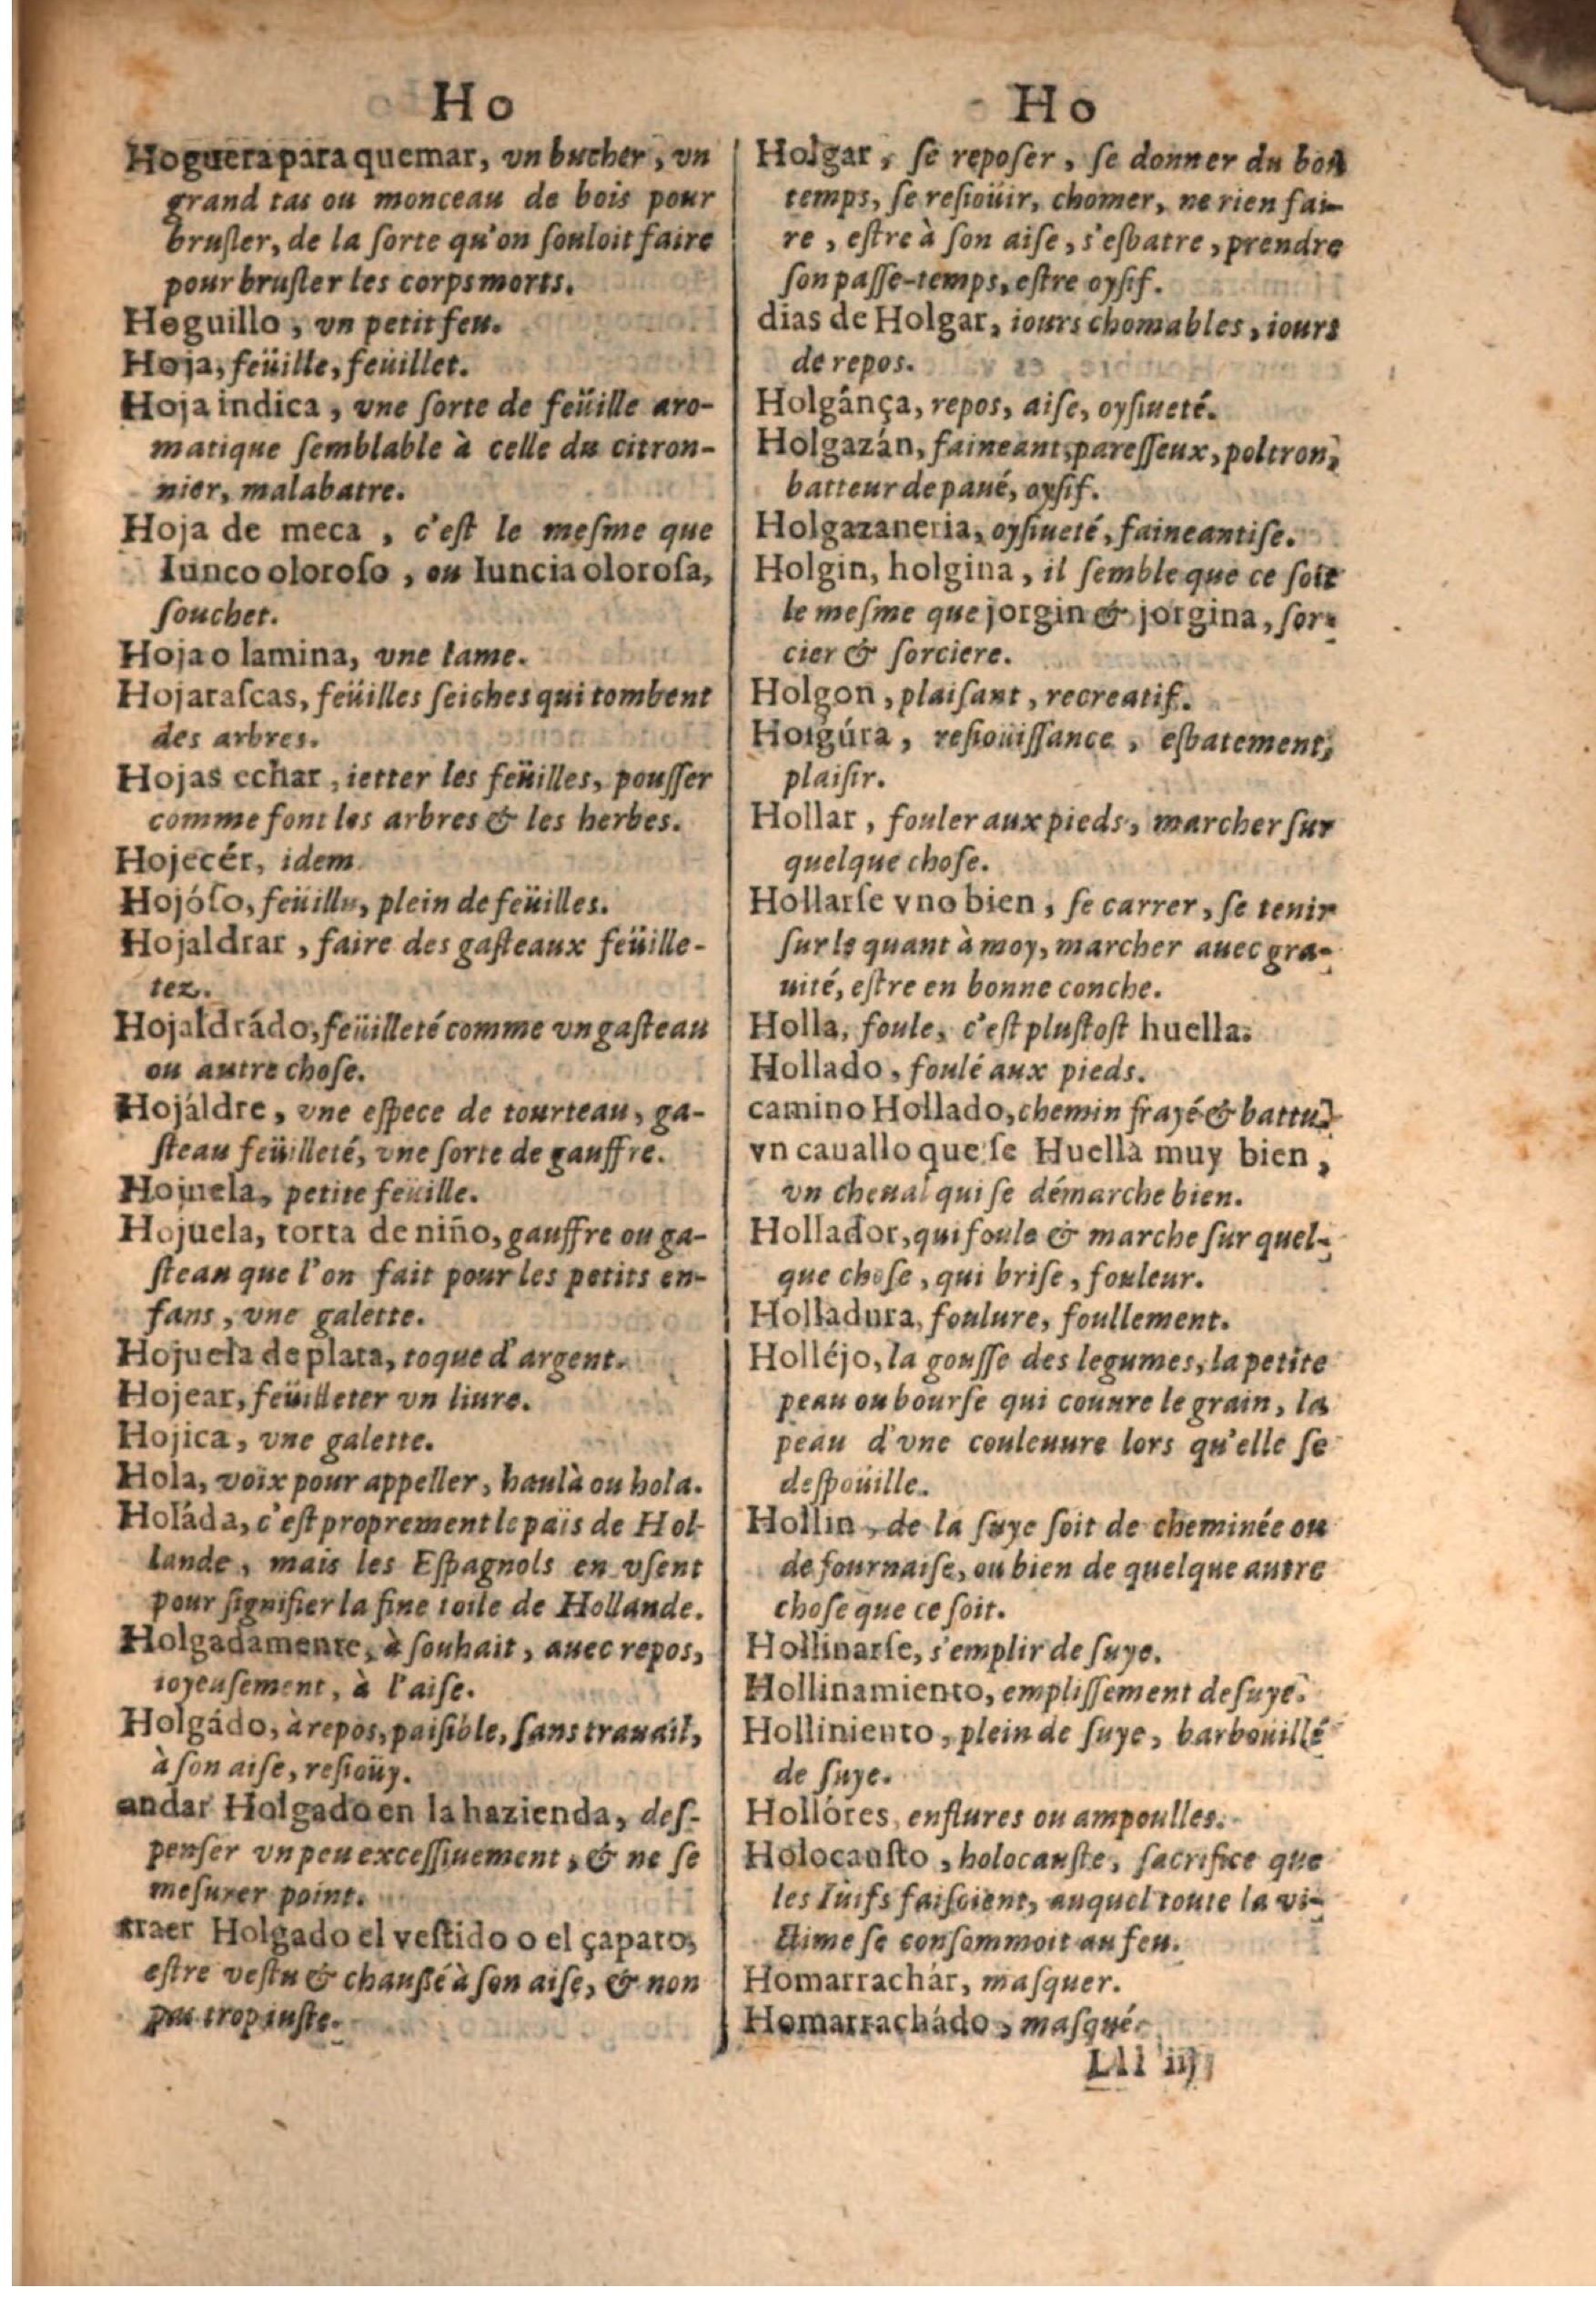 Ho
Hoguera para quemar, vn bucher, vn
grand tas ou monceau de bois pour
bruſler, de la ſorte qu'on ſouloit faire
pour bruſler les corps morts.
Hoguillo, vn petit feu.
Hoja, feüille, feüillet.
Hoja indica, vne ſorte de feüille aro-
matique ſemblable à celle du citron-
nier, malabatre.
Hoja de meca, c'eſt le meſme que
Iunco oloroſo, ou Iuncia oloroſa,
ſouchet.
Hoja o lamina, vne lame.
Hojaraſcas, feüilles ſeiches qui tombent
des arbres.
Hojas echar, ietter les feüilles, pouſſer
comme font les arbres & les herbes.
Hojecér, idem.
Hojóſo, feüillu, plein de feüilles.
Hojaldrar, faire des gaſteaux feüille-
tez.
Hojaldrádo, feüilleté comme vn gaſteau
ou autre choſe.
Hojáldre, vne eſpece de tourteau, ga-
ſteau feüilleté, vne ſorte de gauffre.
Hojuela, petite feüille.
Hojuela, torta de niño, gauffre ou ga-
ſteau que l'on fait pour les petits en-
fans, vne galette.
Hojuela de plata, toque d'argent.
Hojear, feüilleter vn liure.
Hojica, vne galette.
Hola, voix pour appeller, haulà ou hola.
Holáda, c'eſt proprement le païs de Hol-
lande, mais les Eſpagnols en vſent
pour ſignifier la fine toile de Hollande.
Holgadamente, à ſouhait, auec repos,
ioyeuſement, à l'aiſe.
Holgádo, à repos, paiſible, ſans trauail,
à ſon aiſe, reſioüy.
andar Holgado en la hazienda, deſ-
penſer vn peu exceſſiuement, & ne ſe
meſurer point.
traer Holgado el veſtido o el çapato,
eſtre veſtu & chauſſé à ſon aiſe, & non
pas trop iuſte.
Ho
Holgar, ſe repoſer, ſe donner du bon
temps, ſe reſioüir, chomer, ne rien fai-
re, eſtre à ſon aiſe, s'eſbatre, prendre
ſon paſſe-temps, eſtre oyſif.
dias de Holgar, iours chomables, iours
de repos.
Holgânça, repos, aiſe, oyſiueté.
Holgazán, faineant, pareſſeux, poltron,
batteur de paué, oyſif.
Holgazaneria, oyſiueté, faineantiſe.
Holgin, holgina, il ſemble que ce ſoit
le meſme que jorgin & jorgina, ſor-
cier & ſorciere.
Holgon, plaiſant, recreatif.
Holgúra, reſioüiſſance, eſbatement,
plaiſir.
Hollar, fouler aux pieds, marcher ſur
quelque choſe.
Hollarſe vno bien, ſe carrer, ſe tenir
ſur le quant à moy, marcher auec gra-
uité, eſtre en bonne conche.
Holla, foule, c'eſt pluſtoſt huella.
Hollado, foulé aux pieds.
camino Hollado, chemin frayé & battu.
vn cauallo que ſe Huella muy bien,
vn cheual qui ſe démarche bien.
Hollador, qui foule & marche ſur quel-
que choſe, qui briſe, fouleur.
Holladura, foulure, foullement.
Holléjo, la gouſſe des legumes, la petite
peau ou bourſe qui couure le grain, la
peau d'vne couleuure lors qu'elle ſe
deſpoüille.
Hollin, de la ſuye ſoit de cheminée ou
de fournaiſe, ou bien de quelque autre
choſe que ce ſoit.
Hollinarſe, s'emplir de ſuye.
Hollinamiento, empliſſement de ſuye.
Holliniento, plein de ſuye, barboüillé
de ſuye.
Hollóres, enflures ou ampoulles.
Holocauſto, holocauſte, ſacrifice que
les Iuifs faiſoient, auquel toute la vi-
ctime ſe conſommoit au feu.
Homarrachár, maſquer.
Homarrachádo, maſqué.
Lll iij